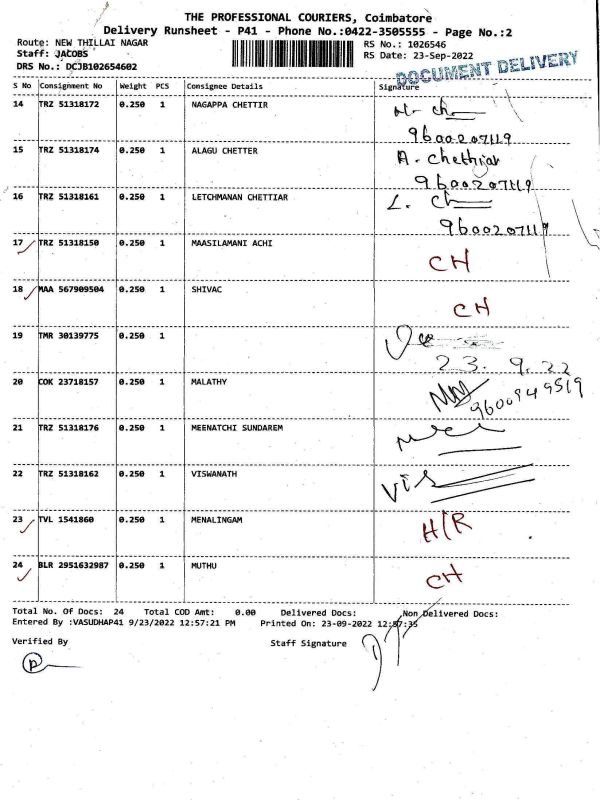 THE PROFESSIONAL COURIERS, Coimbatore
Delivery Runsheet - P41 - Phone No.:0422-3505555 - Page No.:2
Route: NEW THILLAI NAGAR RS No.: 1026546
Staff: JACOBS RS Date: 23-Sep-2022
DRS No.: DCJB102654602
DOCUMENT DELIVERY
S No Consignment No Weight PCS Consignee Details Signature
14 TRZ 51318172 0.250 1 NAGAPPA CHETTIR N- Ch
9600207119
15 TRZ 51318174 0.250 1 ALAGU CHETTER A. Chethiar
9600207119
16 TRZ 51318161 0.250 1 LETCHMANAN CHETTIAR L. Ch
9600207119
17 TRZ 51318150 0.250 1 MAASILAMANI ACHI CH
18 MAA 567909504 0.250 1 SHIVAC CH
19 TMR 30139775 0.250 1
23. 9. 22
20 COK 23718157 0.250 1 MALATHY
9600949519
21 TRZ 51318176 0.250 1 MEENATCHI SUNDAREM
22 TRZ 51318162 0.250 1 VISWANATH Vis
23 TVL 1541860 0.250 1 MENALINGAM H/R
24 BLR 2951632987 0.250 1 MUTHU CH
Total No. Of Docs: 24 Total COD Amt: 0.00 Delivered Docs: Non Delivered Docs:
Entered By :VASUDHAP41 9/23/2022 12:57:21 PM Printed On: 23-09-2022 12:57:35
Verified By Staff Signature